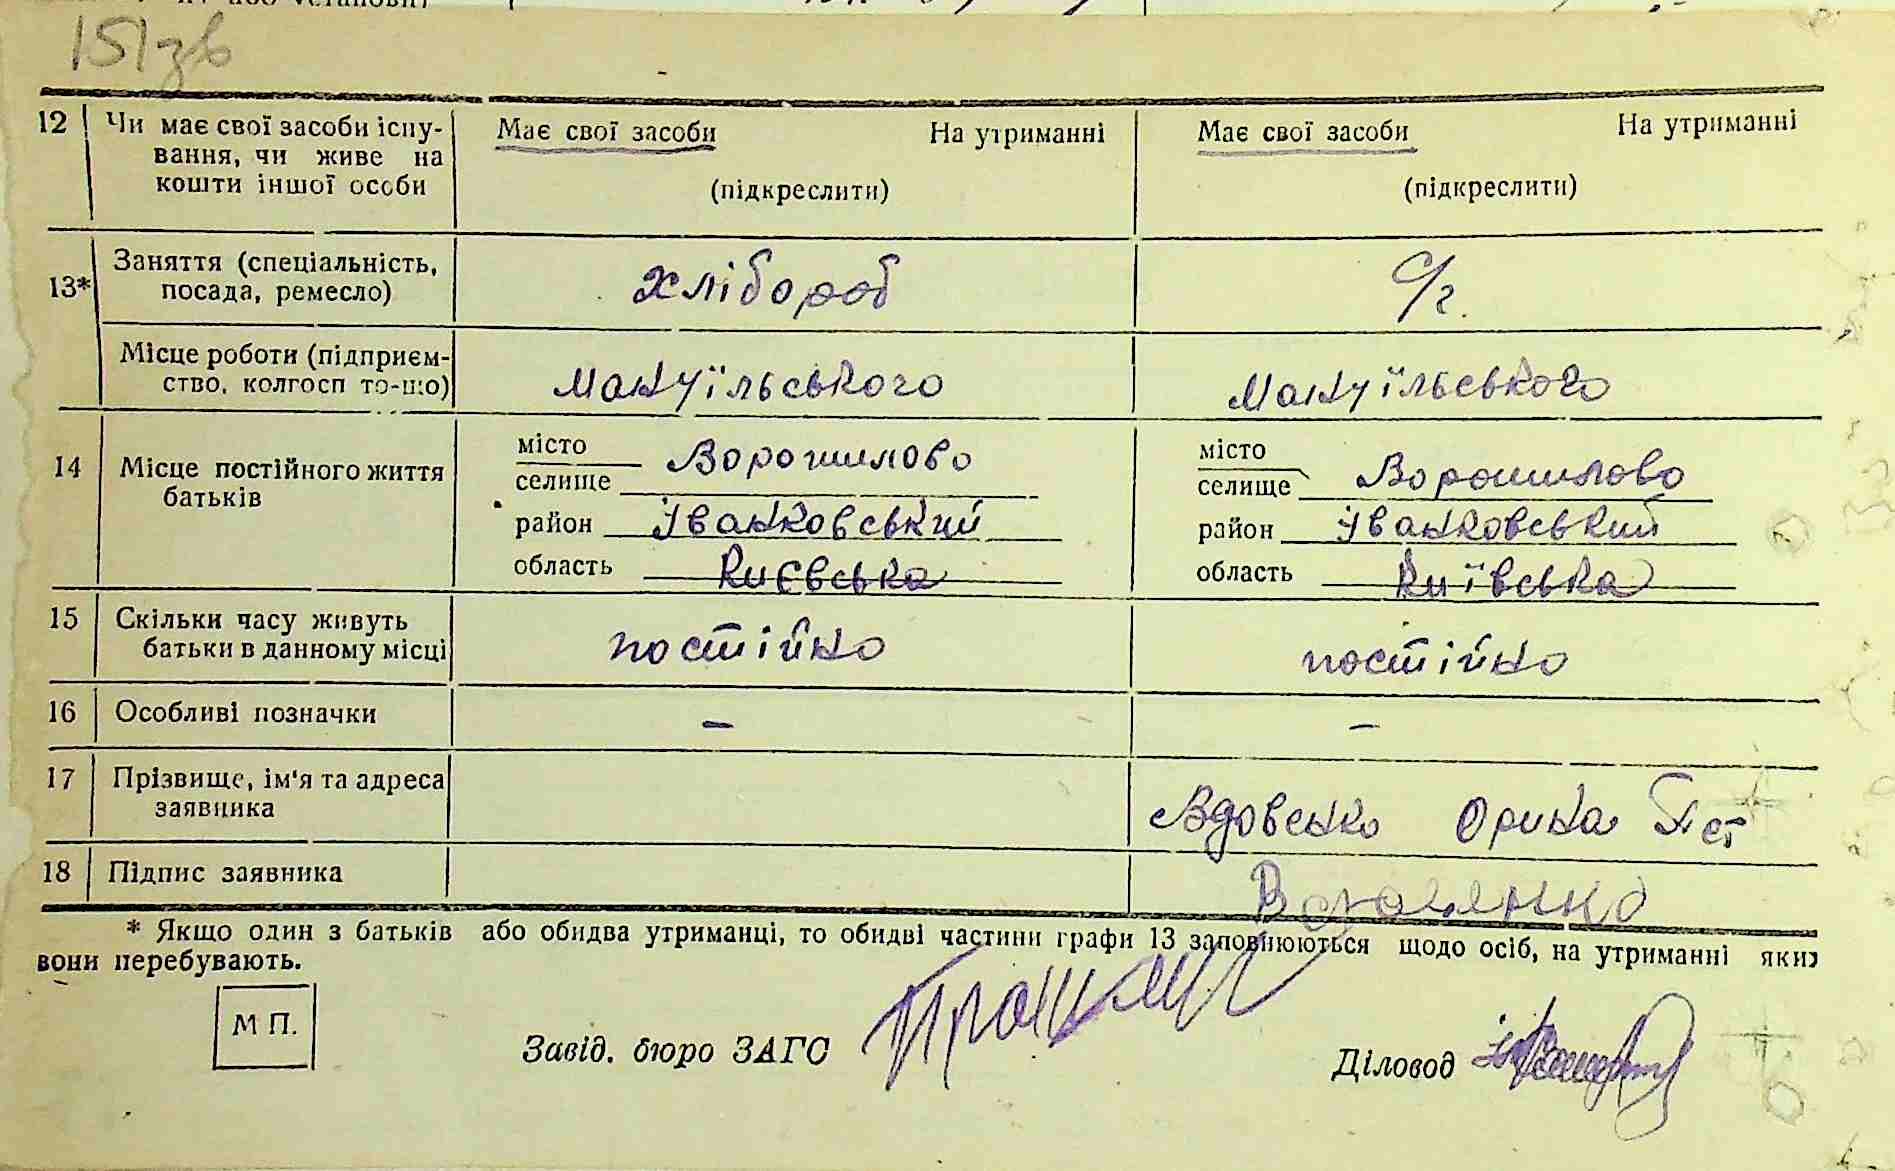 151зв
12 Чи має свої засоби існу- Має свої засоби На утриманні Має свої засоби На утриманні
вання, чи живе на
кошти іншої особи (підкреслити) (підкреслити)
13* Заняття (спеціальність,
посада, ремесло) хлібороб с/г.
Місце роботи (підприєм-
ство, колгосп то-що) Мануїльського Мануїльського
14 Місце постійного життя
батьків
місто Ворошилово місто Ворошилово
селище селище
район Іванковський район Іванковський
область Києвська область Київська
15 Скільки часу живуть
батьки в данному місці постійно постійно
16 Особливі позначки – –
17 Прізвище, ім'я та адреса
заявника Вдовенко Орина
18 Підпис заявника
* Якщо один з батьків або обидва утриманці, то обидві частини графи 13 заповнюються щодо осіб, на утриманні яких
вони перебувають.
М П.
Завід. бюро ЗАГС
Діловод